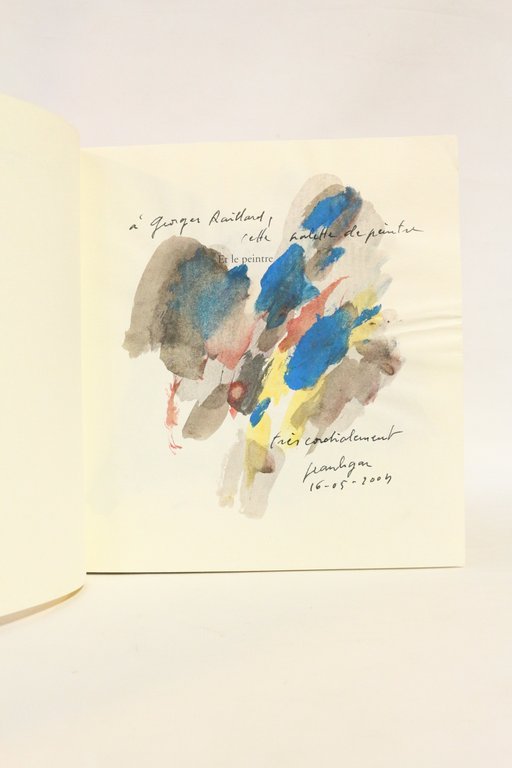 à Georges Raillard,
cette palette de peintre
Et le peintre
très cordialement
16-05-2004